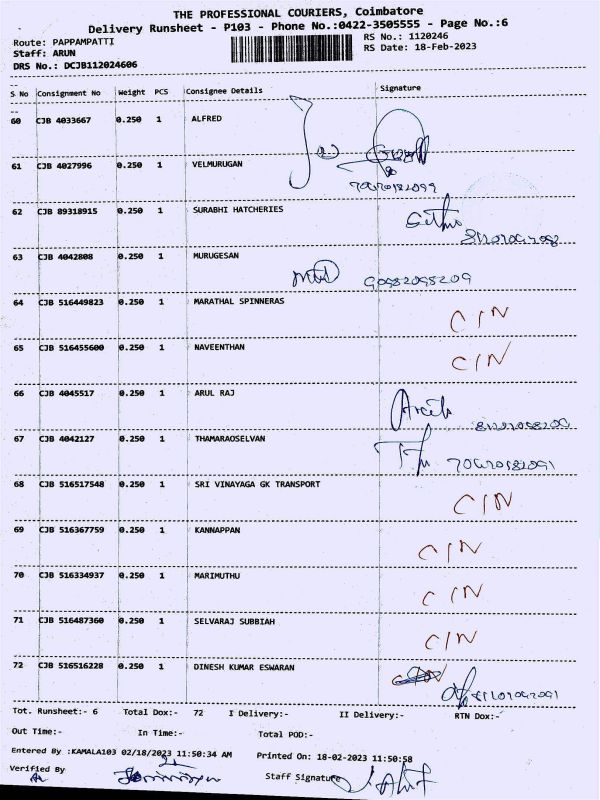 THE PROFESSIONAL COURIERS, Coimbatore
Delivery Runsheet - P103 - Phone No.:0422-3505555 - Page No.:6
Route: PAPPAMPATTI RS No.: 1120246
Staff: ARUN RS Date: 18-Feb-2023
DRS No.: DCJB112024606
S No Consignment No Weight PCS Consignee Details Signature
60 CJB 4033667 0.250 1 ALFRED
61 CJB 4027996 0.250 1 VELMURUGAN
62 CJB 89318915 0.250 1 SURABHI HATCHERIES
63 CJB 4042808 0.250 1 MURUGESAN
64 CJB 516449823 0.250 1 MARATHAL SPINNERAS C/N
65 CJB 516455600 0.250 1 NAVEENTHAN C/N
66 CJB 4045517 0.250 1 ARUL RAJ
67 CJB 4042127 0.250 1 THAMARAOSELVAN
68 CJB 516517548 0.250 1 SRI VINAYAGA GK TRANSPORT C/N
69 CJB 516367759 0.250 1 KANNAPPAN C/N
70 CJB 516334937 0.250 1 MARIMUTHU C/N
71 CJB 516487360 0.250 1 SELVARAJ SUBBIAH C/N
72 CJB 516516228 0.250 1 DINESH KUMAR ESWARAN
Tot. Runsheet:- 6 Total Dox:- 72 I Delivery:- II Delivery:- RTN Dox:-
Out Time:- In Time:- Total POD:-
Entered By :KAMALA103 02/18/2023 11:50:34 AM Printed On: 18-02-2023 11:50:58
Verified By Staff Signature